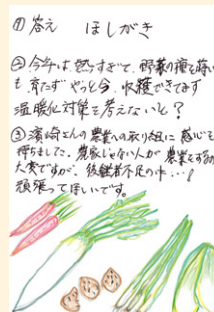 ① 答え ほしがき
② 今年は熱すぎて、野菜の種を蒔いて
も育たずやっと今、収穫できてます
温暖化対策を考えないと?
③ 濱崎さんの農業への取り組に感心を
持ちました。農家じゃない人が農業をするの
大変ですが、後継者不足の中…!
頑張ってほしいです。